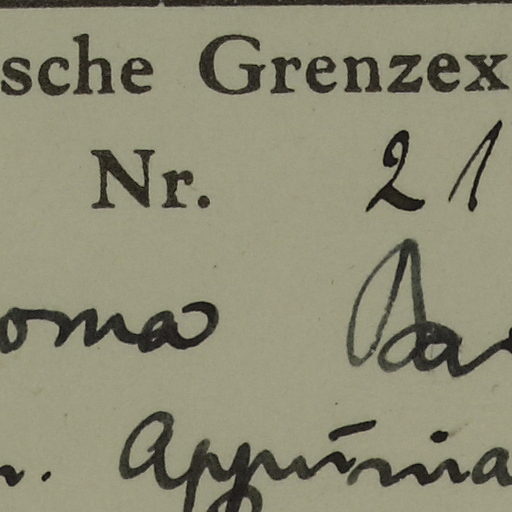 sche Grenzex
Nr. 21
oma Ba
n. Appūnia